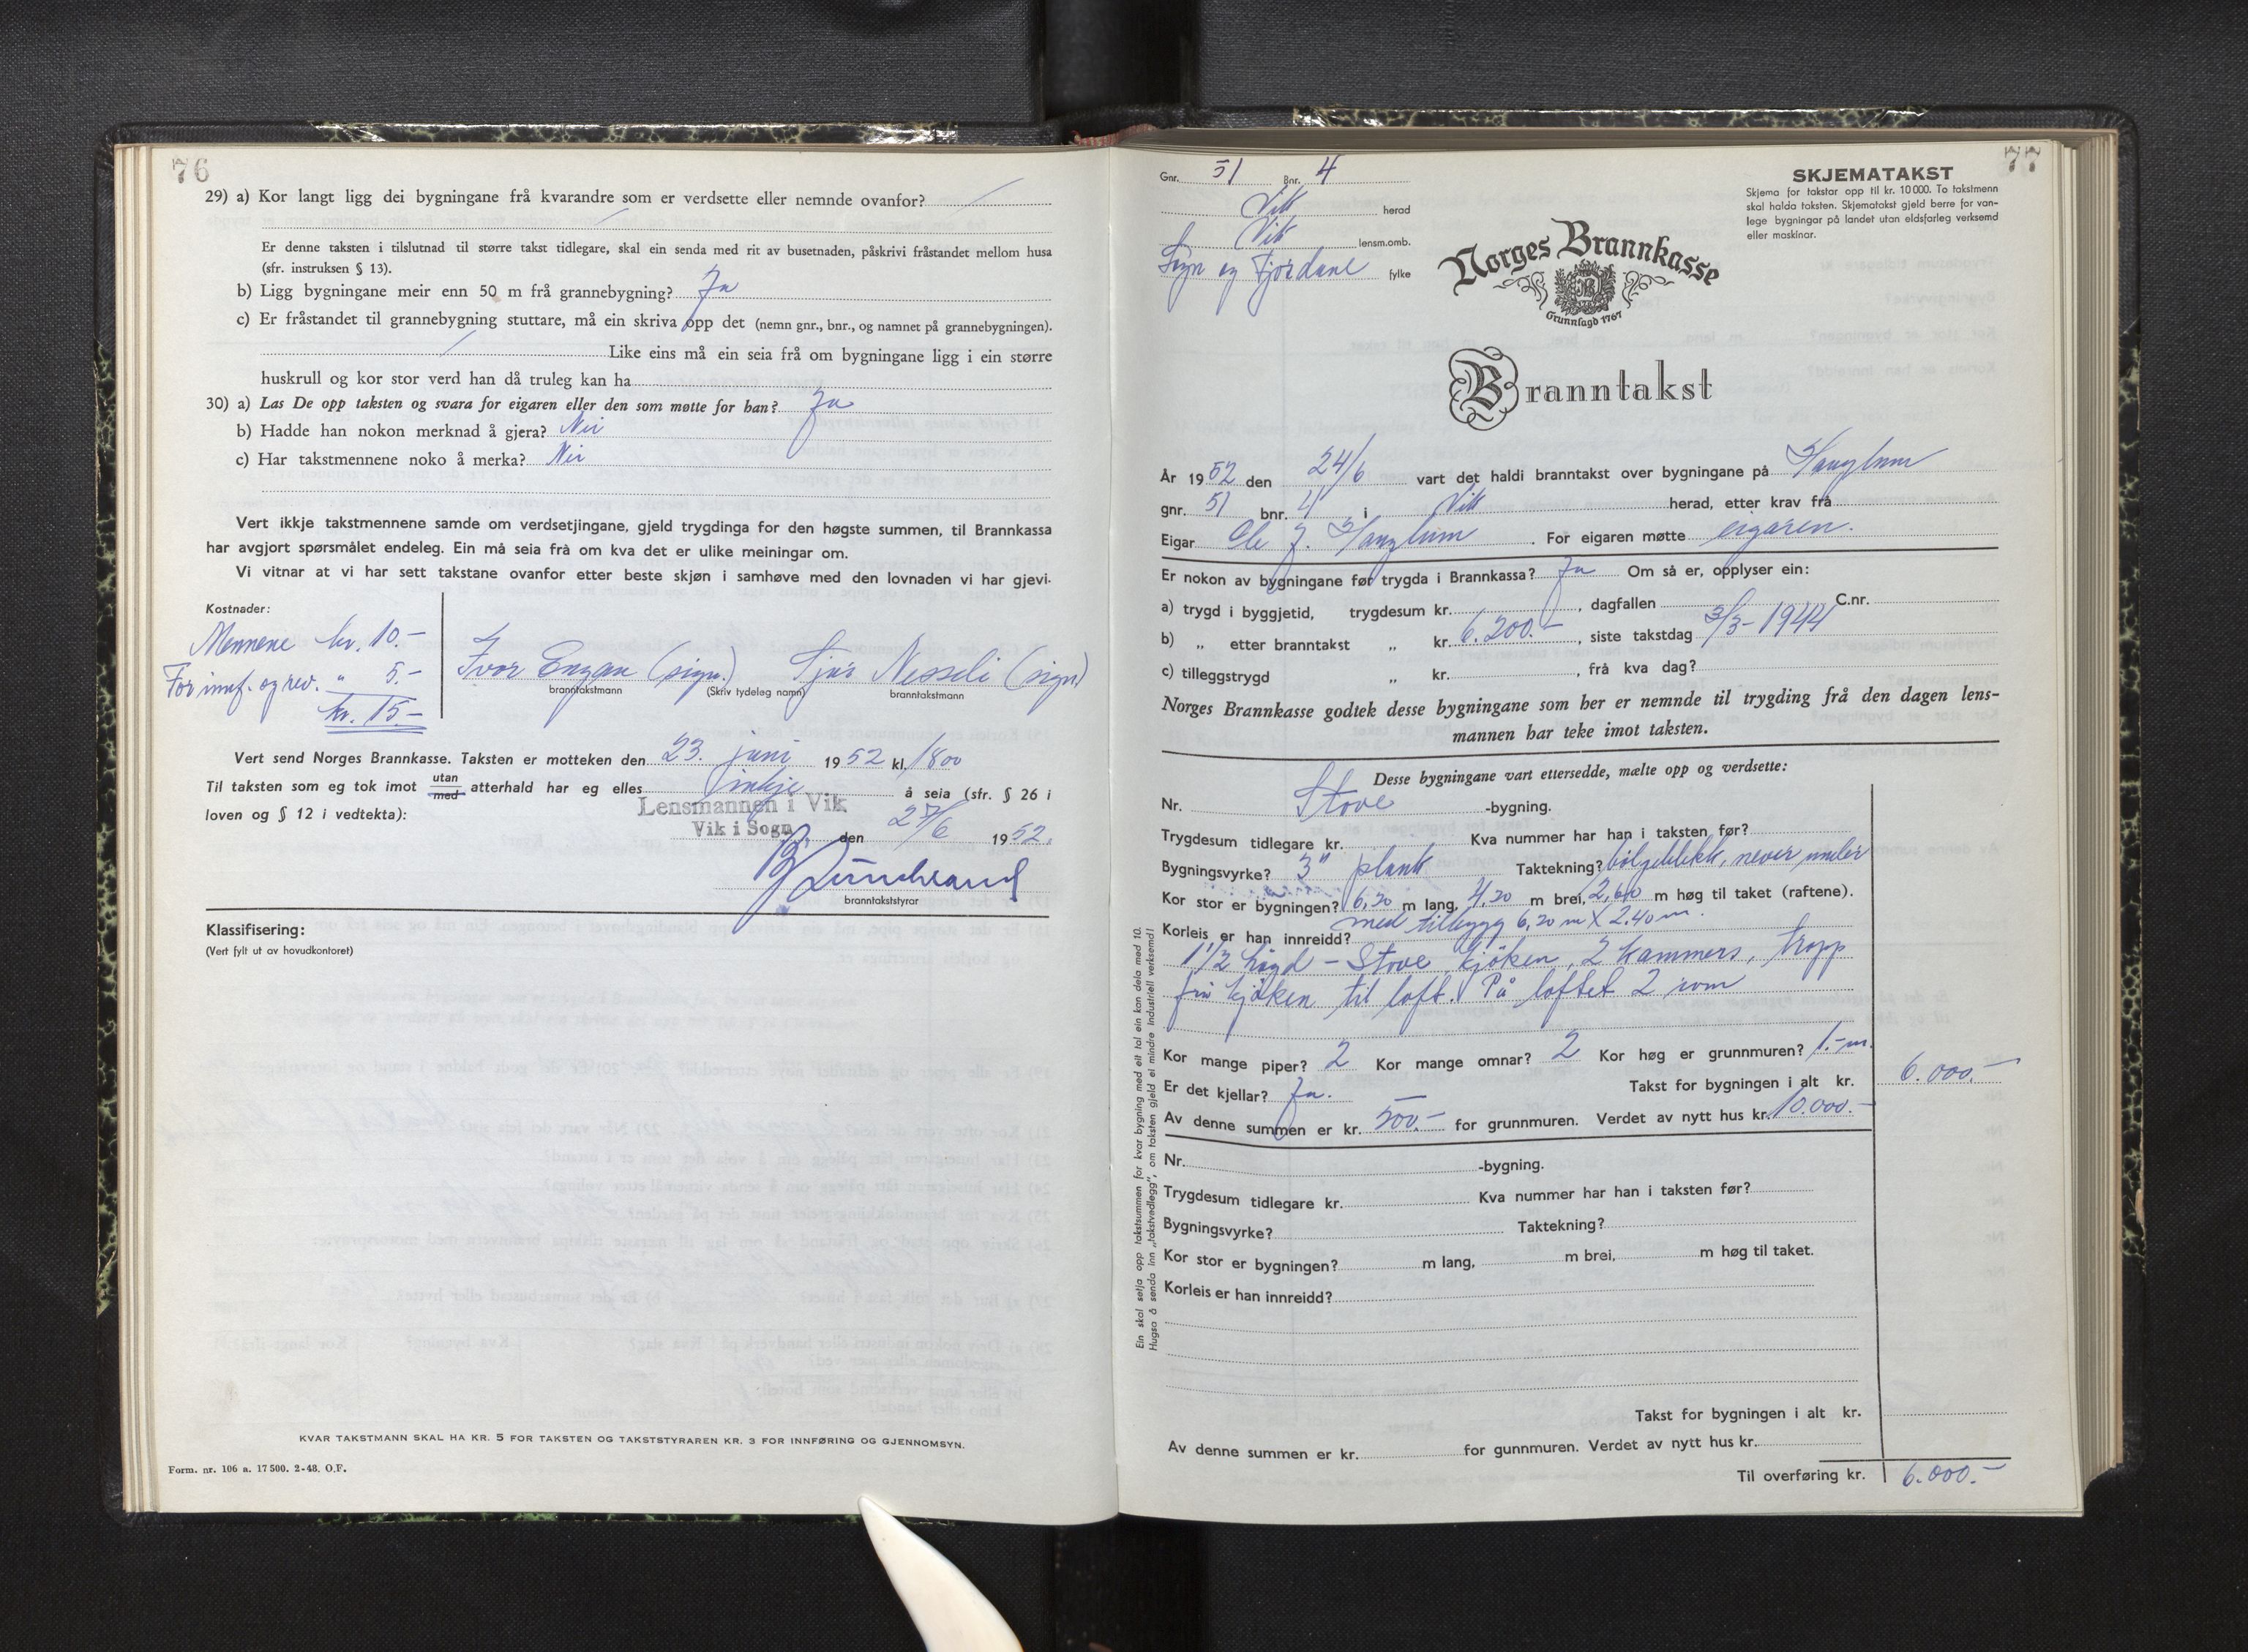 76
29) a) Kor langt ligg dei bygningane frå kvarandre som er verdsette eller nemnde ovanfor?
Er denne taksten i tilslutnad til større takst tidlegare, skal ein senda med rit av busetnaden, påskrivi fråstandet mellom husa
(sfr. instruksen § 13).
b) Ligg bygningane meir enn 50 m frå grannebygning? Ja
c) Er fråstandet til grannebygning stuttare, må ein skriva opp det (nemn gnr., bnr., og namnet på grannebygningen).
Like eins må ein seia frå om bygningane ligg i ein større
huskrull og kor stor verd han då truleg kan ha
30) a) Las De opp taksten og svara for eigaren eller den som møtte for han? Ja
b) Hadde han nokon merknad å gjera? Nei
c) Har takstmennene noko å merka? Nei
Vert ikkje takstmennene samde om verdsetjingane, gjeld trygdinga for den høgste summen, til Brannkassa
har avgjort spørsmålet endeleg. Ein må seia frå om kva det er ulike meiningar om.
Vi vitnar at vi har sett takstane ovanfor etter beste skjøn i samhøve med den lovnaden vi har gjevi.
Kostnader:
Mennene kr. 10.-
For innf. og rev. " 5.-
kr. 15.-
Ivar Engan (sign.) Sjur Nesseli (sign)
branntakstmann (Skriv tydeleg namn) branntakstmann
Vert send Norges Brannkasse. Taksten er motteken den 23. juni 1952 kl. 1800
Til taksten som eg tok imot utan med atterhald har eg elles inkje å seia (sfr. § 26 i
loven og § 12 i vedtekta):
Lensmannen i Vik
Vik i Sogn den 27/6 1952.
branntakststyrar
Klassifisering:
(Vert fylt ut av hovudkontoret)
KVAR TAKSTMANN SKAL HA KR. 5 FOR TAKSTEN OG TAKSTSTYRAREN KR. 3 FOR INNFØRING OG GJENNOMSYN.
Form. nr. 106 a. 17 500. 2-48. O.F.
77
Gnr. 51 Bnr. 4
Vik herad
Vik lensm.omb.
Sogn og Fjordane fylke
SKJEMATAKST
Skjema for takstar opp til kr. 10 000. To takstmenn
skal halda taksten. Skjematakst gjeld berre for van-
lege bygningar på landet utan eldsfarleg verksemd
eller maskinar.
Norges Brannkasse
Grunnlagd 1767
Branntakst
År 1952 den 24/6 vart det haldi branntakst over bygningane på Hanglum
gnr. 51 bnr. 4 i Vik herad, etter krav frå
Eigar Ole J. Hanglum . For eigaren møtte eigaren.
Er nokon av bygningane før trygda i Brannkassa? Ja Om så er, opplyser ein:
a) trygd i byggjetid, trygdesum kr. , dagfallen C.nr.
b) „ etter branntakst „ kr. 6.200.- , siste takstdag 3/3-1944
c) tilleggstrygd „ kr. , frå kva dag?
Norges Brannkasse godtek desse bygningane som her er nemnde til trygding frå den dagen lens-
mannen har teke imot taksten.
Desse bygningane vart ettersedde, mælte opp og verdsette:
Nr. Stove -bygning.
Trygdesum tidlegare kr. Kva nummer har han i taksten før?
Bygningsvyrke? 3" plank Taktekning? bølgeblikk, never under
Kor stor er bygningen? 6,20 m lang, 4.20 m brei, 2,60 m høg til taket (raftene).
med tilbygg 6,20 m X 2.40 m.
Korleis er han innreidd?
1 1/2 høgd - Stove, kjøken, 2 kammers, tropp
frå kjøken til loft. På loftet 2 rom
Kor mange piper? 2 Kor mange omnar? 2 Kor høg er grunnmuren? 1.- m.
Er det kjellar? Ja. Takst for bygningen i alt kr. 6.000.-
Av denne summen er kr. 500.- for grunnmuren. Verdet av nytt hus kr. 10.000.-
Nr. -bygning.
Trygdesum tidlegare kr. Kva nummer har han i taksten før?
Bygningsvyrke? Taktekning?
Kor stor er bygningen? m lang, m brei, m høg til taket.
Korleis er han innreidd?
Takst for bygningen i alt kr.
Av denne summen er kr. for gunnmuren. Verdet av nytt hus kr.
Til overføring kr. 6.000.-
Ein skal setja opp takstsummen for kvar bygning med eit tal ein kan dela med 10.
Hugsa å senda inn „takstvedlegg", om taksten gjeld ei mindre industriell verksemd!